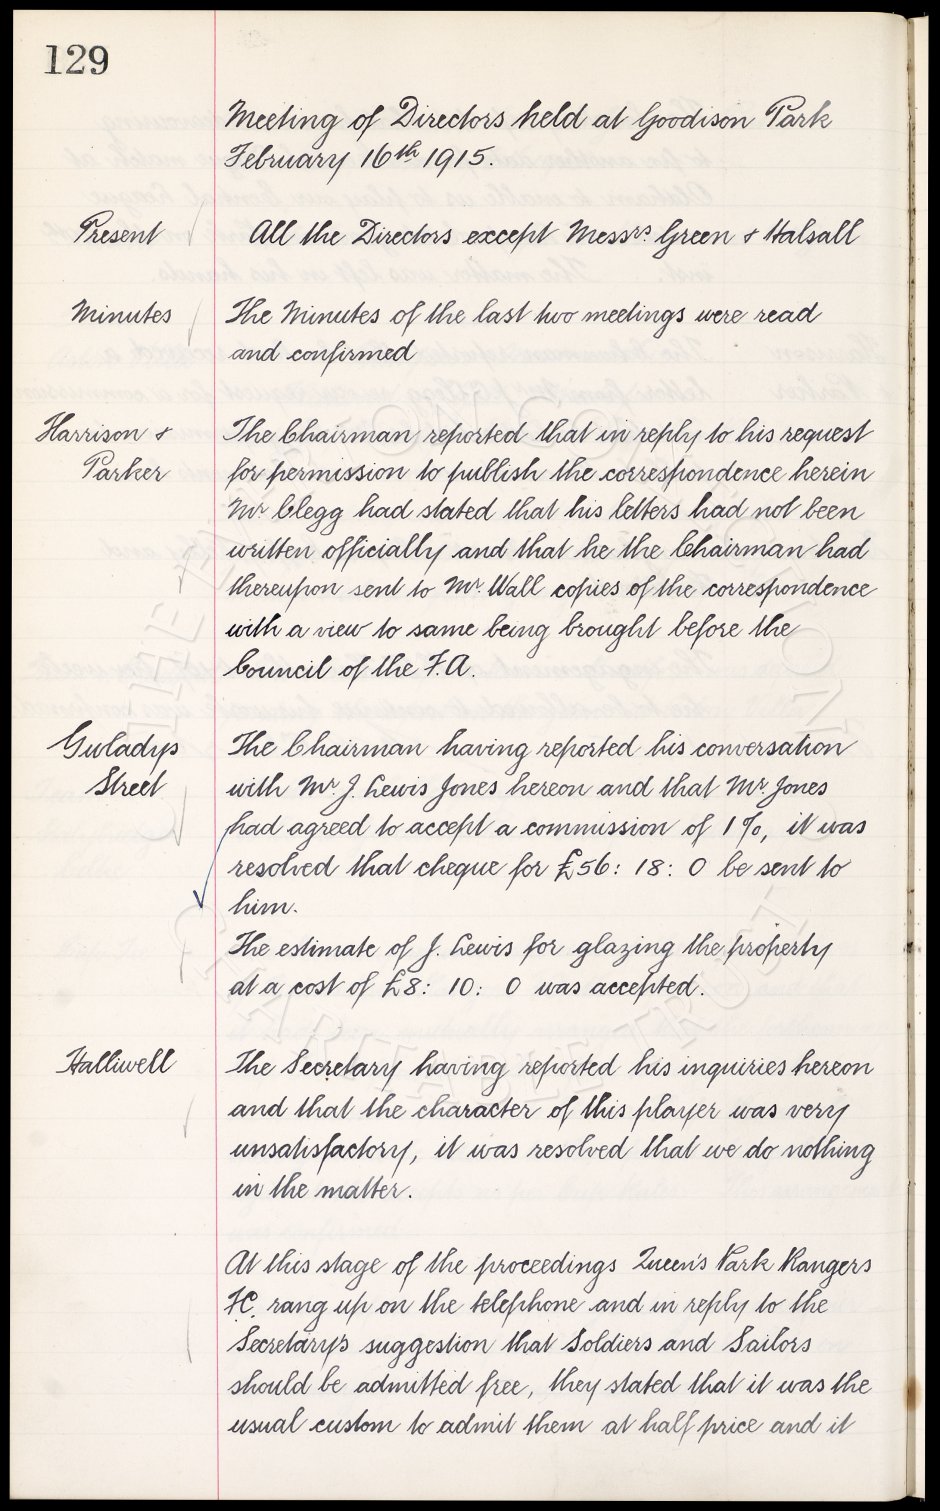 129
Meeting of Directors held at Goodison Park
February 16th 1915.
Present All the Directors except Messrs. Green & Halsall
Minutes The Minutes of the last two meetings were read
and confirmed
Harrison & The Chairman reported that in reply to his request
Parker for permission to publish the correspondence herein
Mr. Clegg had stated that his letters had not been
written officially and that he the Chairman had
thereupon sent to Mr. Wall copies of the correspondence
with a view to same being brought before the
Council of the F.A.
Gwladys The Chairman having reported his conversation
Street with Mr. J. Lewis Jones hereon and that Mr. Jones
had agreed to accept a commission of 1%, it was
resolved that cheque for £56: 18: 0 be sent to
him.
The estimate of J. Lewis for glazing the property
at a cost of £8: 10: 0 was accepted.
Halliwell The Secretary having reported his inquiries hereon
and that the character of this player was very
unsatisfactory, it was resolved that we do nothing
in the matter.
At this stage of the proceedings Queen's Park Rangers
F.C. rang up on the telephone and in reply to the
Secretary's suggestion that Soldiers and Sailors
should be admitted free, they stated that it was the
usual custom to admit them at half price and it